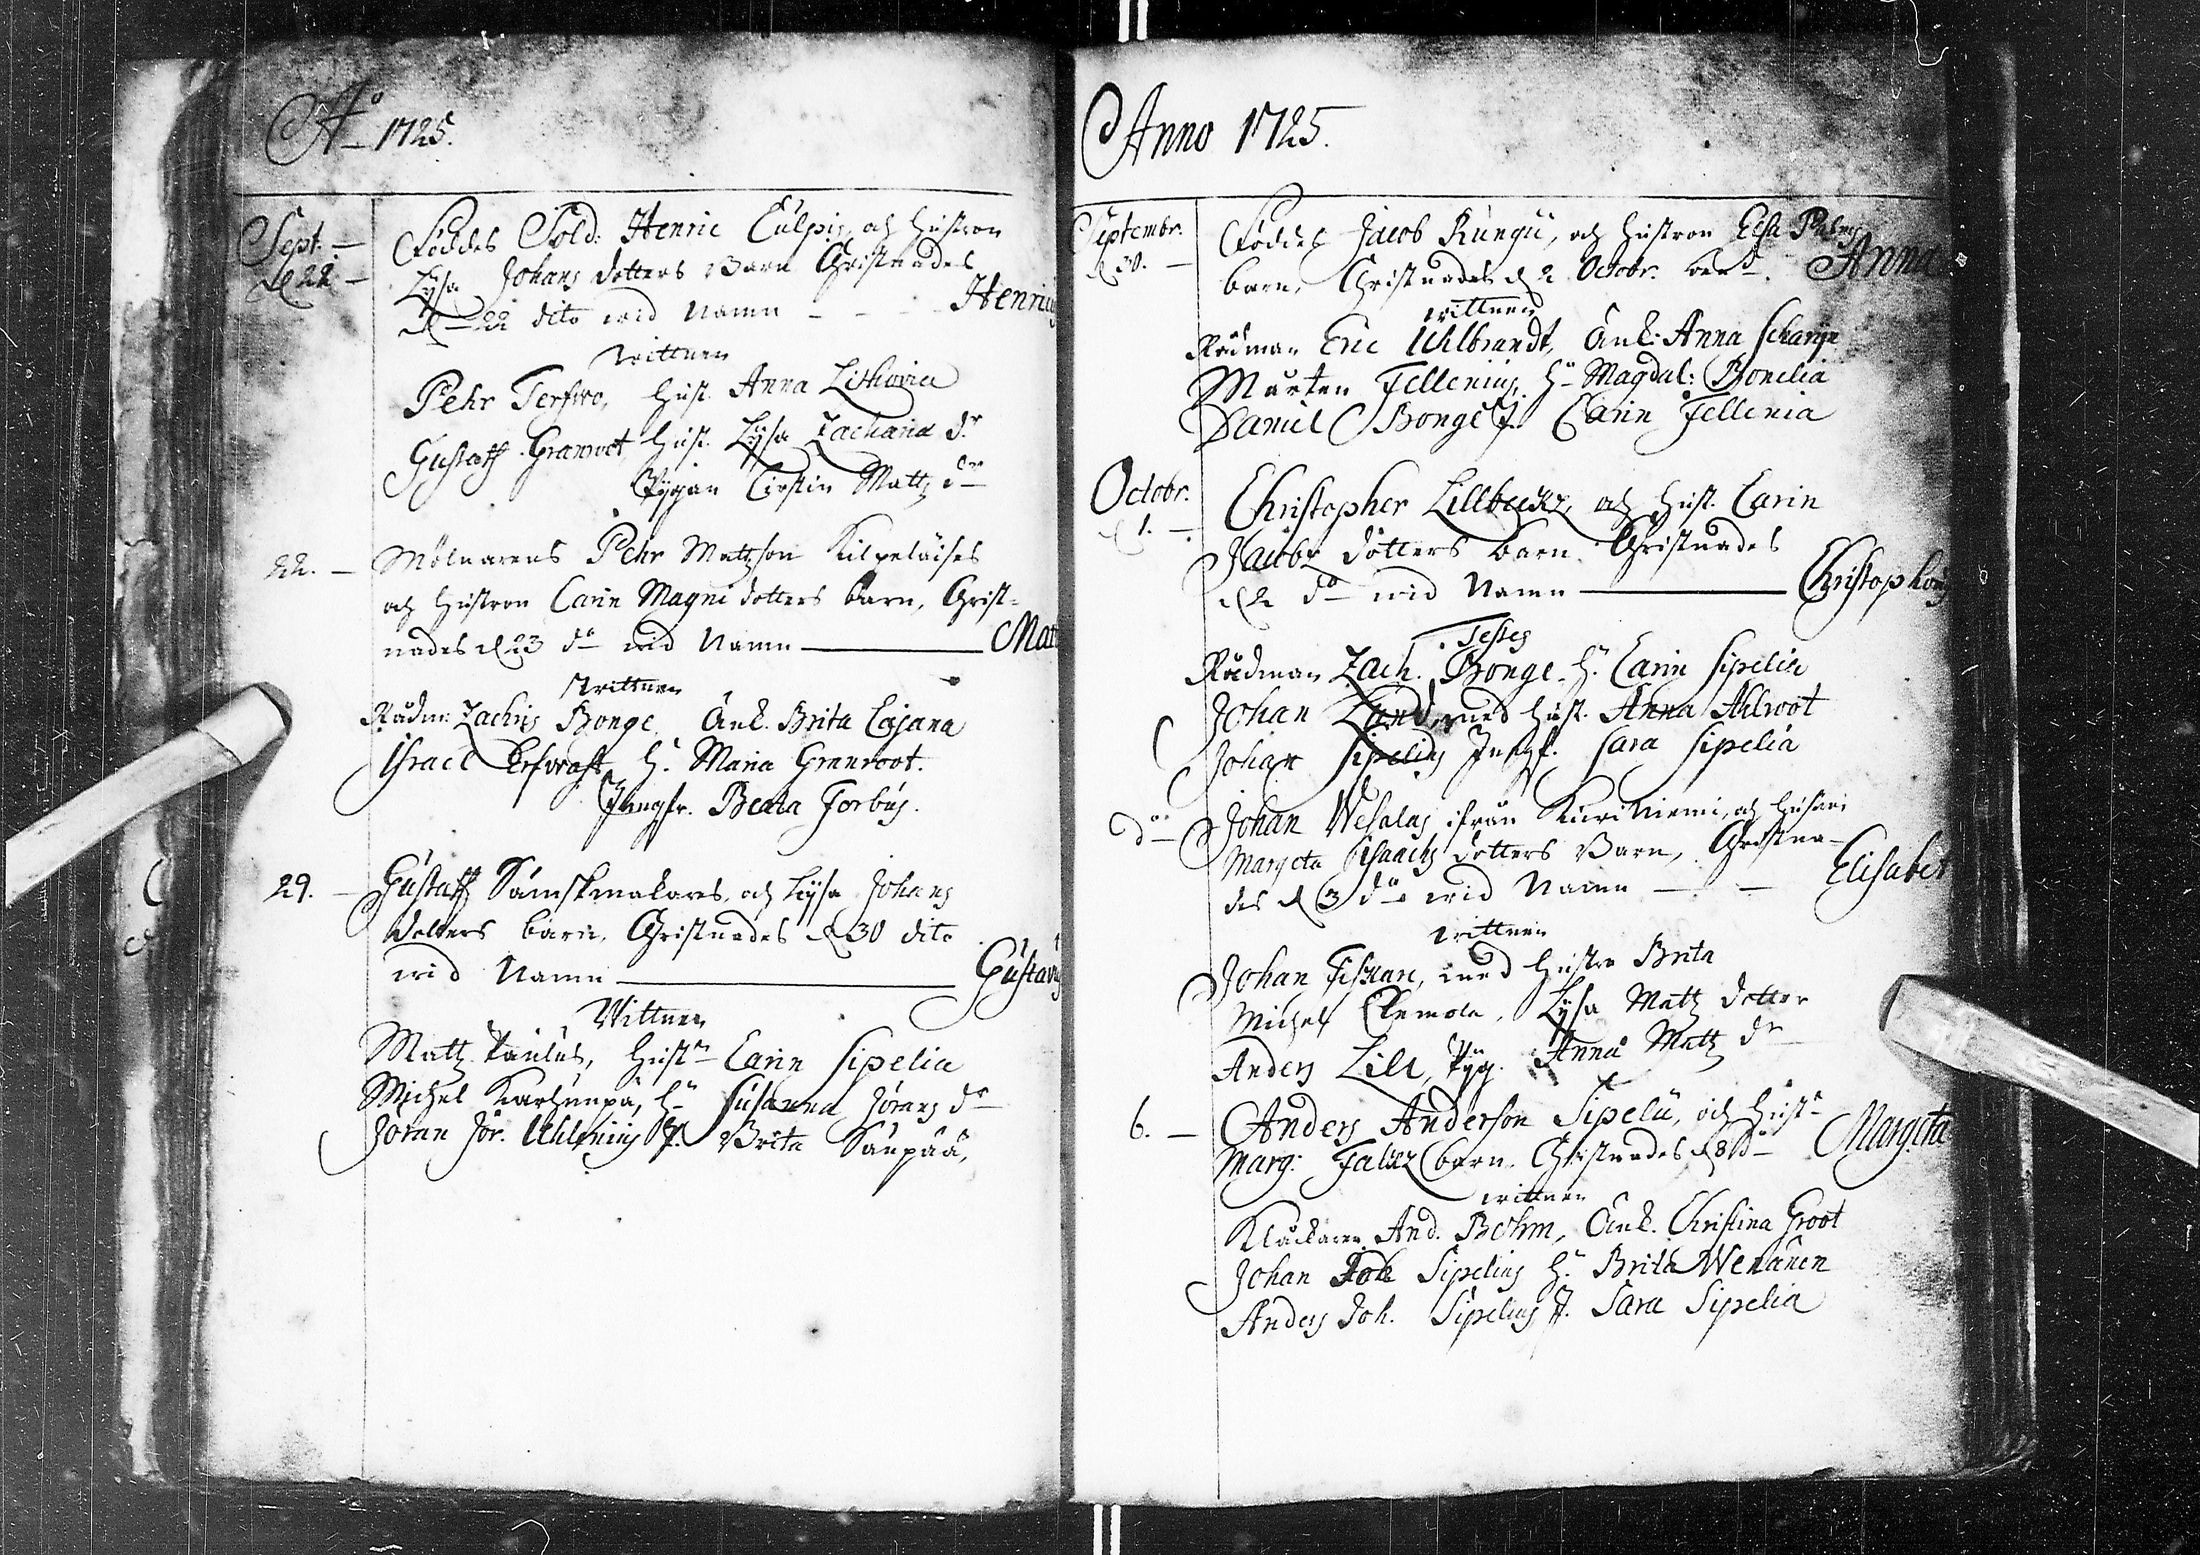 Aº 1725.
Sept. — Föddes Sold: Henric Culpis, och Hustron
d 22 — Lÿsa Johans dotters Barn Christnades
d 22 dito wid Namn - - - Henric
Wittnen
Pehr Terfwo, Hust. Anna Lithovia
Gustaff Granroot Hust. Lÿsa Zachariæ dr
Pÿgan Cirstin Matts dr
22. — Mölnarens Pehr Mattzson Kilpeläises
och Hustron Carin Magni dotters barn, Christ-
nades d 23 do wid Namn — Mat
Wittnen
Rådm: Zachris Bonge Änk. Brita Cajana
Israel H. Maria Granroot.
Jungfr. Beata Forbus.
29. — Gustaff Sämskmakares, och Lÿsa Johans
dotters barn, Christnades d 30 dito
wid Namn — Gustavus
Wittnen
Matz Paulus, Hustr Carin Sipelia
Michel Karhunpä, H. Susanna Jörans dr
Joran Jör. Uhlenius J. Brita Säupää,
Anno 1725.
Septembr. Föddes Jacob Rungii, och Hustron Elsa
d 30. — barn, Christnades d 2 Octobr. Anna
wittnen
Rådman Eric Uhlbrandt, Änk: Anna Scharin
Mårten Fellenius, H. Magdal: Bonelia
Daniel Bonge J. Carin Fellenia
Octobr. Christopher Lillbeckz, och Hust. Carin
d 1. — Jacobz dotters barn Christnades
d 2 do wid Namn — Christophorus
Testes
Rådman Zach. Bonge. H. Carin Sipelia
Johan med Hust. Anna Ahlroot
Johan Sipelius Jungf. Sara Sipelia
do — Johan Wesalus ifrån Kuriniemi, och Hustrus
Margeta Isaachs dotters Barn, Christna-
des d 3 do wid Namn — — Elisabet
wittnen
Johan Fiskare, med Hustro Brita
Michel Clemola, Lÿsa Matz dotter
Anders Lill, Pÿg. Anna Matz dr
6. — Anders Anderson Sipelii, och Hustr
Marg: Falckz barn. Christnades d 8 do Margeta
wittnen
Klåckaren And. Bohm, Änk. Christina Groot
Johan Joh Sipelius H. Brita Wenänen
Anders Joh. Sipelius J. Sara Sipelia